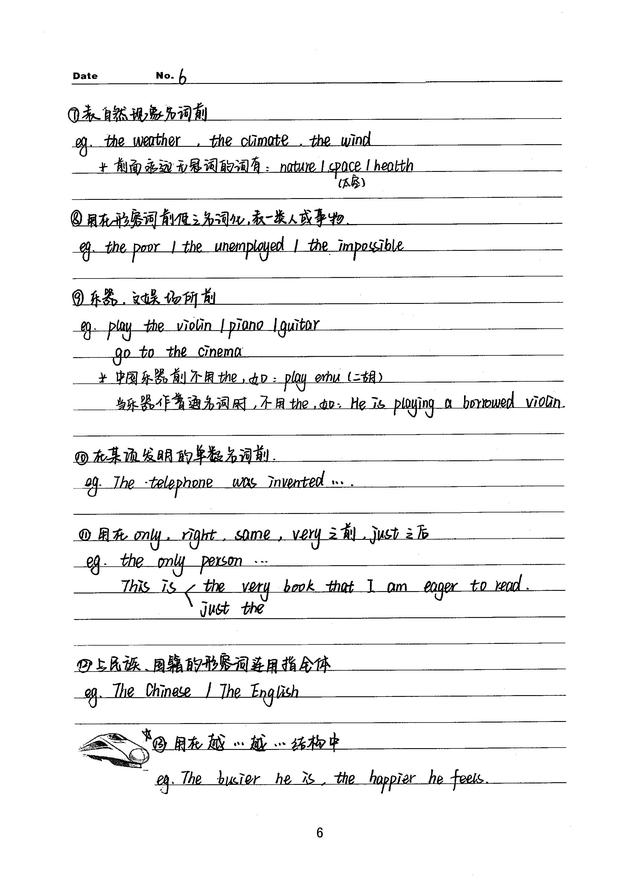 Date No. 6
⑦表自然现象名词前
eg. the weather , the climate . the wind
* 前面永远无冠词的词有: nature / space / health
(太空)
⑧用在形容词前使之名词化,表一类人或事物.
eg. the poor / the unemployed / the impossible
⑨乐器.文娱场所前
eg. play the violin / piano / guitar
go to the cinema
* 中国乐器前不用the,如: play erhu (二胡)
当乐器作普通名词时,不用the,如: He is playing a borrowed violin.
⑩在某项发明的单数名词前.
eg. The telephone was invented ….
⑪用在only. right . same , very之前.just之后
eg. the only person …
This is the very book that I am eager to read.
just the
⑫与民族、国籍的形容词连用指全体
eg. The Chinese / The English
⑬用在越…越…结构中
eg. The busier he is, the happier he feels.
6